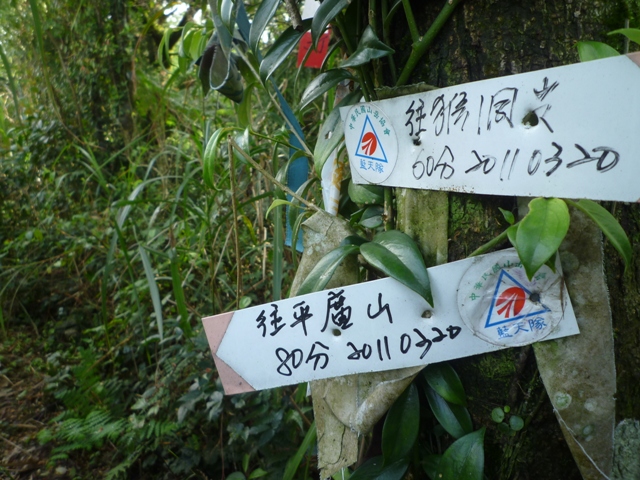 往猴洞尖
60分 20110320
藍天隊
往平廣山
80分 20110320
藍天隊